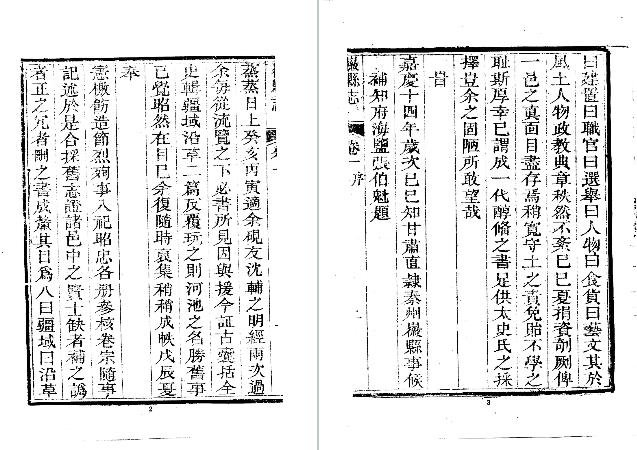 蒸蒸日上癸亥丙寅適余硯友沈輔之明經兩次過
余每從流覽之下必書所見因與援今証古囊括全
史輯疆域沿革二篇反覆玩之則河池之名勝舊事
已覺昭然在目已余復隨時裒集稍稍成帙戊辰夏
奉
憲檄飭造節烈殉事入祀昭忠各册參核卷宗隨事
記述於是合採舊志證諸邑中之賢士缺者補之譌
者正之冗者刪之書成釐其目爲八曰疆域曰沿革
2
曰建置曰職官曰選舉曰人物曰食貨曰藝文其於
風土人物政教典章秩然不紊已巳夏捐資剞劂俾
一邑之真面目盡存焉稍寬守土之責免貽不學之
耻斯厚幸已謂成一代醇備之書足供太史氏之採
擇豈余之固陋所敢望哉
旹
嘉慶十四年歲次己巳知甘肅直隷秦州徽縣事候
補知府海鹽張伯魁題
徽縣志 卷一 序
3